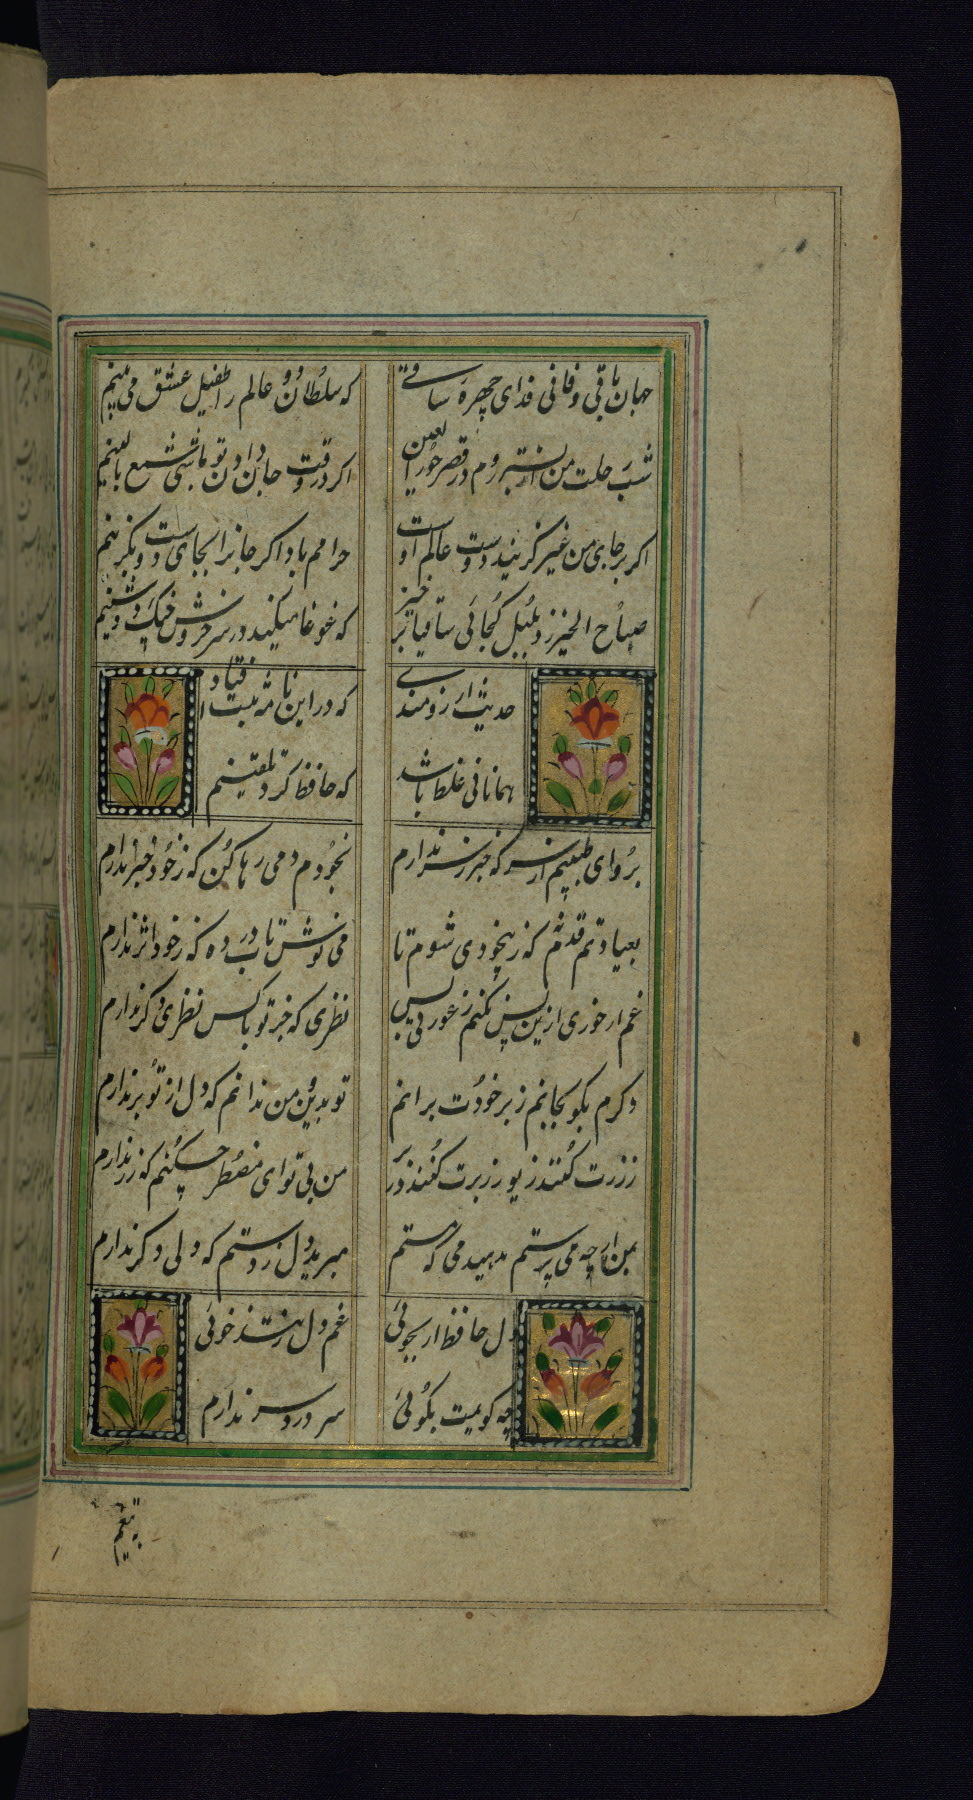 جهان باقی و فانی فدای چهره ساقی
که سلطان دو عالم را طفیل عشق می بینم
شب حلت من از بستر روم در قصر حور العین
اکر در وقت جان دادن تو باشی شمع بالینم
اکر بر جای من غیر کزیند دوست عالم اوست
حرامم باد اکر جانرا بجای دوست بکزینم
صباح الخیر زد بلبل کجائی ساقیا برخیز
که غوغا میکند در سر خروش خنک دوشینم
حدیث ارزومندی
که در این نامه ثبت افتاد
همانا بی غلط باشد
که حافظ کرد تلقینم
برو ای طبیبم از سر که خبر ز سر ندارم
بخودم دمی رها کن که ز خود خبر ندارم
بعیادتم قدم که ز بیخودی شوم تا
می نوش تا در ده که ز خود اثر ندارم
غم ار خوری ازین پس نکنم ز غم خوری بس
نظری که جز تو با کس نظری دکر ندارم
دکرم بکو بجانم ز بر خودت برانم
تو بدین و من ندانم که دل از تو بر ندارم
ز زرت کنند زیور بزرت کنند در بر
من بی توای مضطر چکنم که زر ندارم
بمن ار چه می پرستم مدهید می که مستم
مبرید دل ز دستم که دلی دکر ندارم
دل حافظ ار بجوئی
غم دل ز تند خوئی
چه کویمت بکوئی
سر دردسر ندارم